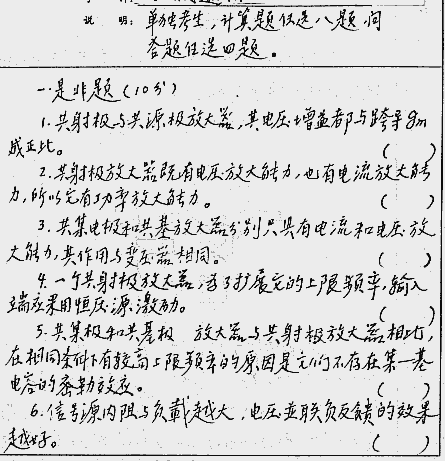 说 明: 单独考生,计算题任选八题,问
答题任选四题。
一.是非题(10分)
1.共射极与共源极放大器,其电压增益都与跨导gm
成正比。 ( )
2.共射极放大器既有电压放大能力,也有电流放大能
力,所以它有功率放大能力。 ( )
3.共集电极和共基放大器分别只具有电流和电压放
大能力,其作用与变压器相同。 ( )
4.一个共射极放大器,为了扩展它的上限频率,输入
端应采用恒压源激励。 ( )
5.共集极和共基极 放大器与共射极放大器相比,
在相同条件下有较高上限频率的原因是它们不存在集一基
电容的密勒效应。 ( )
6.信号源内阻与负载越大,电压並联负反馈的效果
越好。 ( )